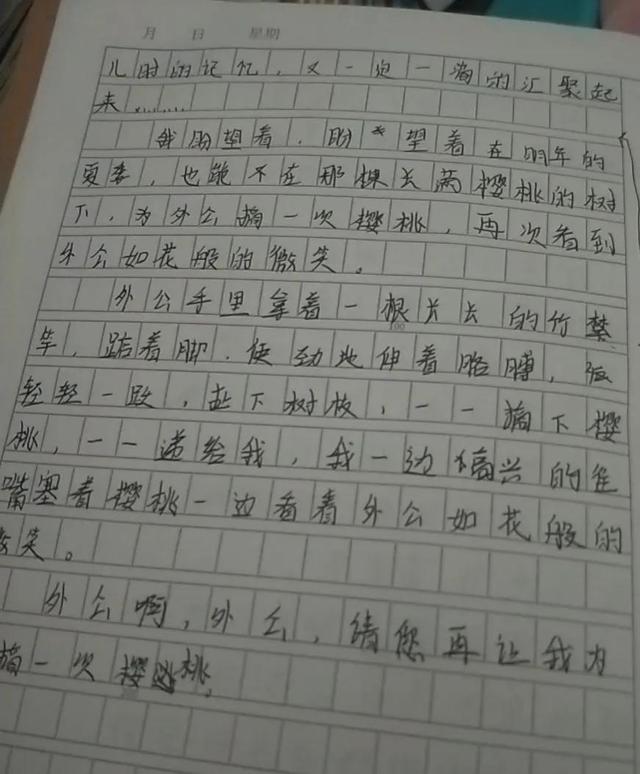 月 日 星期
儿时的记忆，又一点一滴的汇聚起
来………
我盼望着，盼望着在明年的
夏季，也能不在那棵长满樱桃的树
下，为外公摘一次樱桃，再次看到
外公如花般的微笑。
外公手里拿着一根长长的竹
竿，踮着脚，使劲地伸着胳膊，
轻轻一跃，扯下树枝，一一摘下樱
桃，一一递给我，我一边高兴的往
嘴塞着樱桃一边看着外公如花般的
笑。
外公啊，外公，请您再让我为
摘一次樱桃，
100